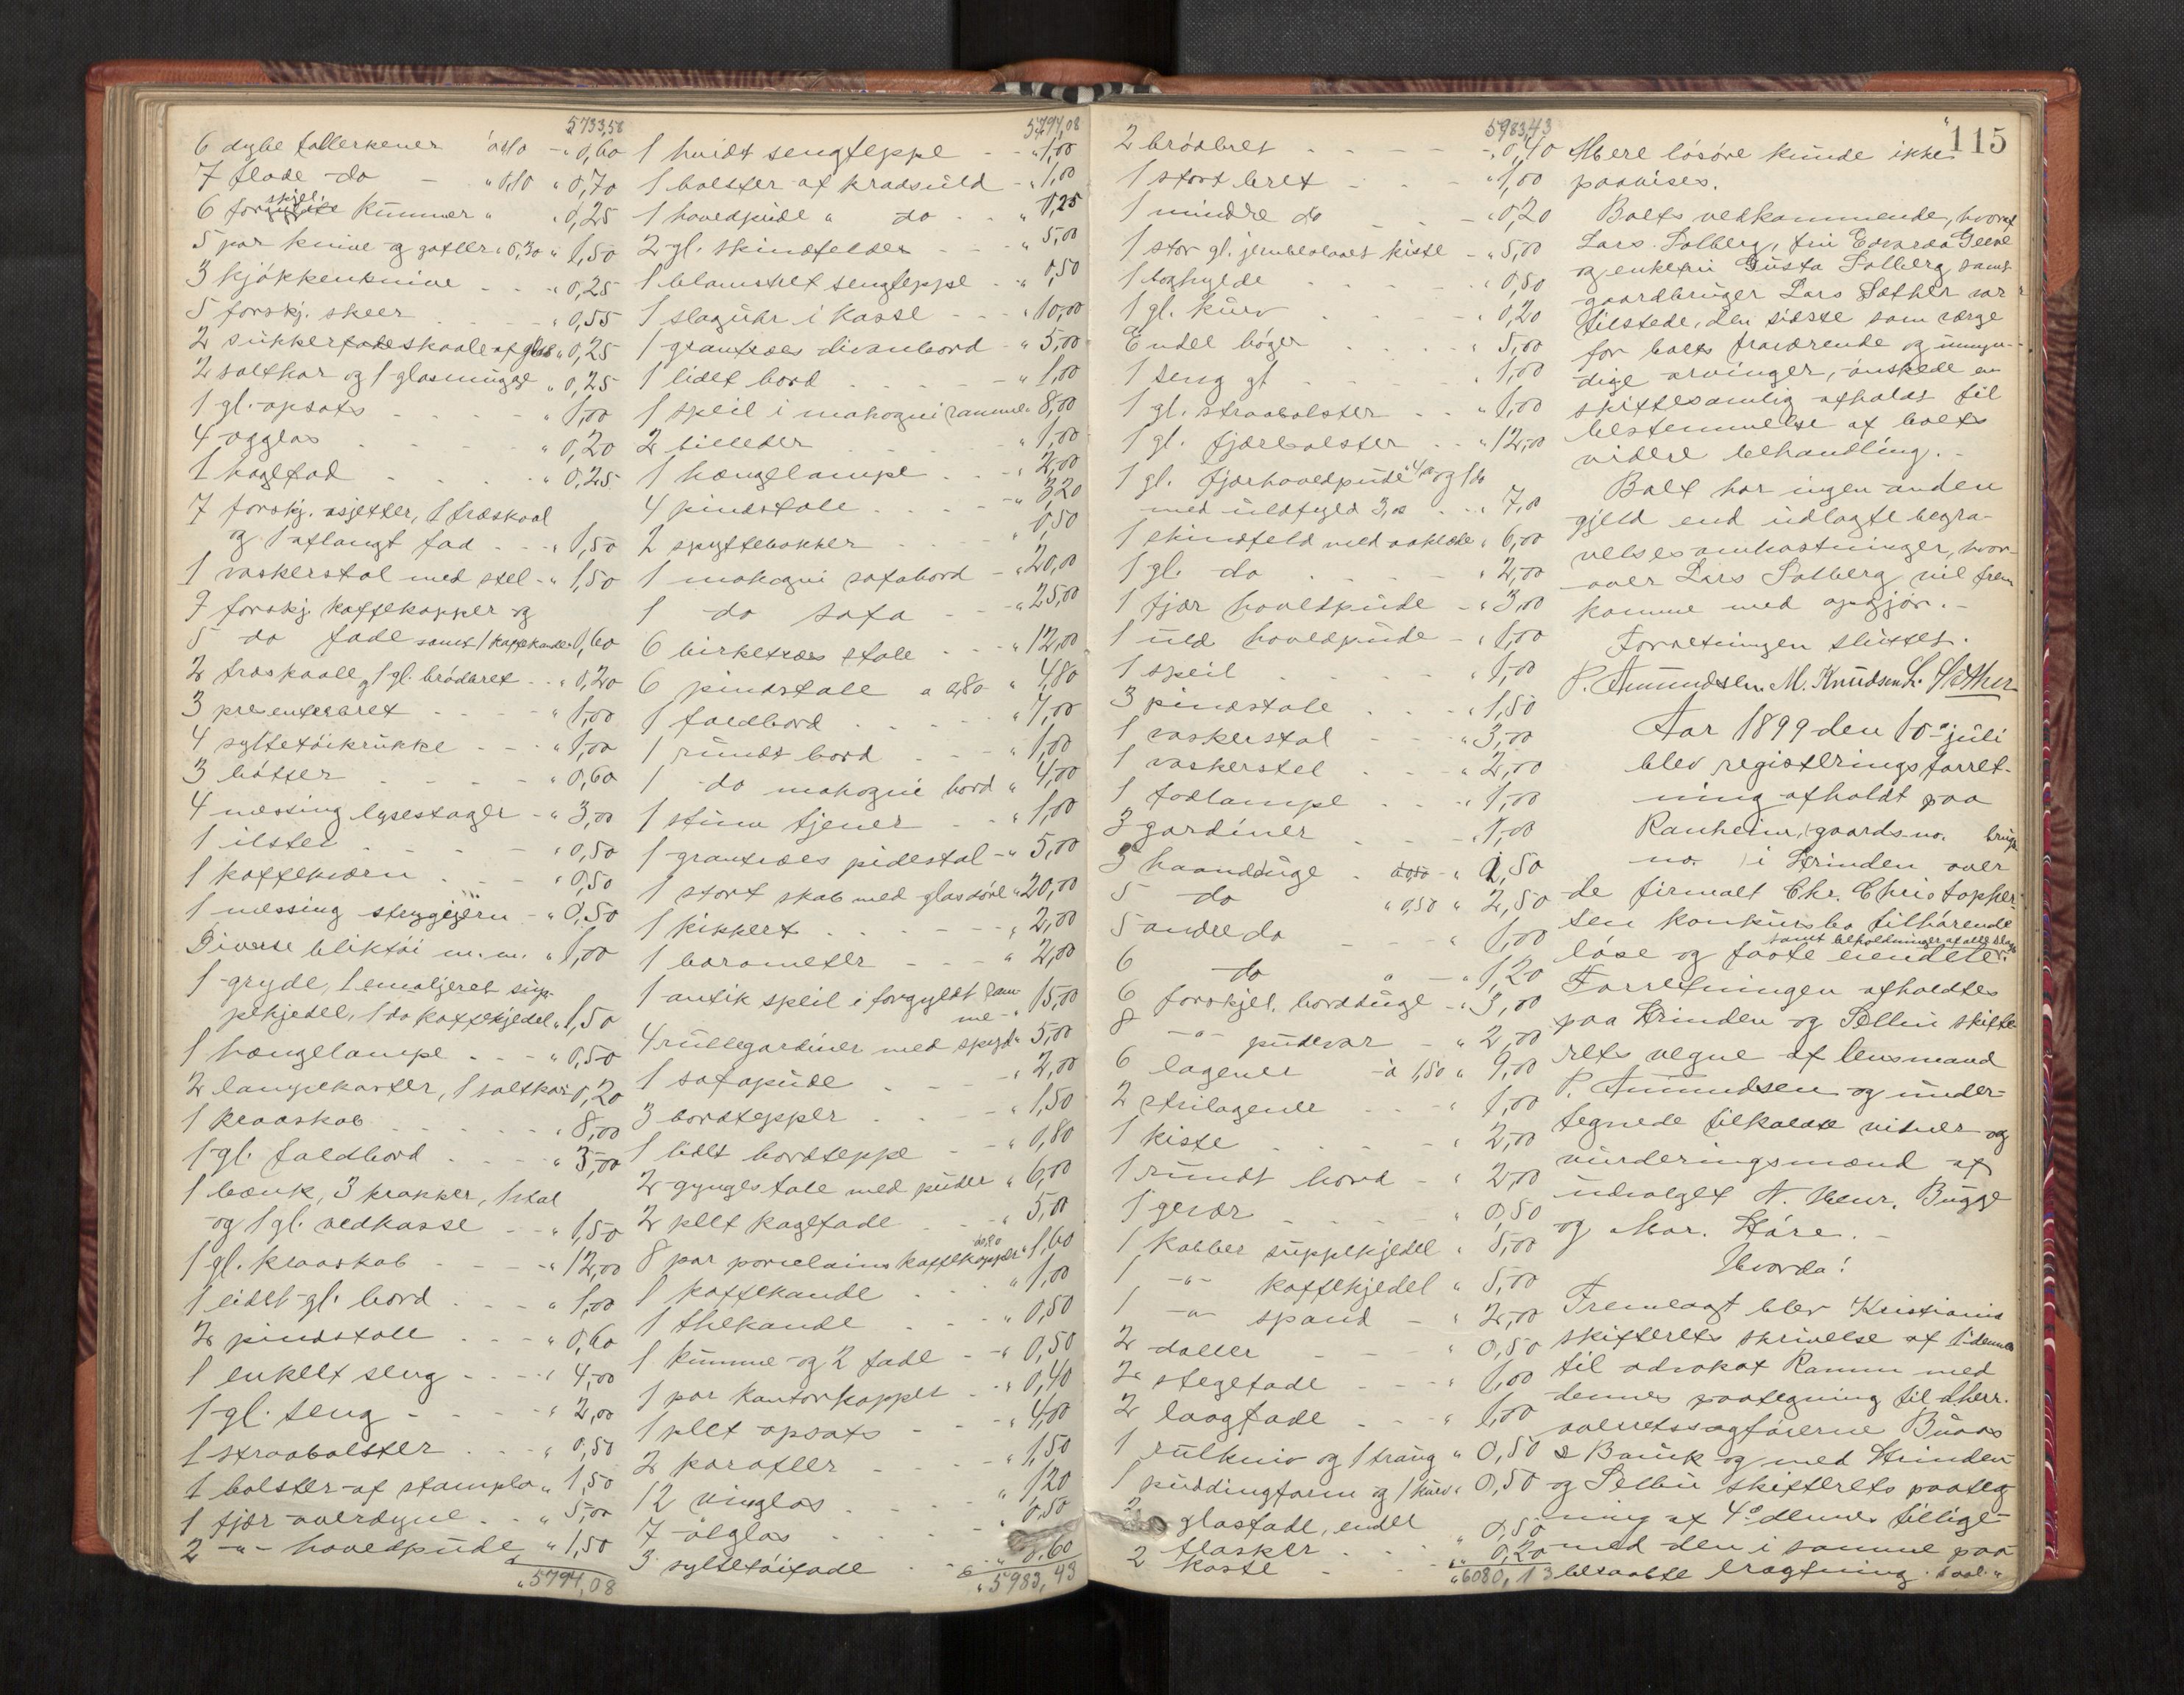 5733,58
6 dybe tallerkener à 0,10 - " 0,60
7 flade do - " 0,10 " 0,70
6 forskjel. kummer " " 0,25
5 par knive og gafler " 0,30 " 1,50
3 kjøkkenknive - - - " 0,25
5 forskj. skeer - - " 0,55
2 sukkerskaale af glas " 0,25
2 saltkar og 1 glasmugge " 0,25
1 gl. opsats - - - - " 1,00
4 ægglas - - - - " 0,20
1 kagefad - - - - " 0,25
7 forskj. asjetter, 1 træskaal
og 1 aflangt fad - - " 1,50
1 vaskerstol med stel - " 1,50
7 forskj. kaffekopper og
5 do fade samt 1 kaffekande " 1,60
2 træskaale, 1 gl. brödbret - - " 0,20
3 presenterbret - - - " 1,00
4 syltetöikrukke - - " 1,00
3 bötter - - - - " 0,60
4 messing lysestager - " 3,00
1 ilster - - - - " 0,50
1 kaffekværn - - " 0,50
1 messing strygejern - " 0,50
Diverse bliktöi m.m. " 1,00
1 gryde, 1 emaljeret sup-
pekjedel, 1 do kaffekjedel " 1,50
1 hængelampe - - - " 0,50
2 lampekaster, 1 saltkar 0,20
1 kraaskab - - - - " 8,00
1 gl. foldbord - - - " 3,00
1 bænk, 3 krakker, 1 stol
og 1 gl. vedkasse - - " 1,50
1 gl. kraaskab - - - " 12,00
1 lidet gl. bord - - - " 1,00
2 pindstole - - - " 0,60
1 enkelt seng - - - " 4,00
1 gl. seng - - - - " 2,00
1 straabolster - - - " 0,50
1 bolster af stamplo " 1,50
1 fjær overdyne - - " 5,00
2 -"- hovedpude " 1,50
" 5794,08
5794,08
1 hvidt sengteppe - - " 1,00
1 bolster af kradsuld - " 1,00
1 hovedpude " do - - " 0,25
2 gl. skindfelder - - " 5,00
1 blomstret sengteppe - " 0,50
1 slaguhr i kasse - - - " 10,00
1 grantræes divanbord - " 5,00
1 lidet bord - - - - " 1,00
1 speil i mahogni ramme " 8,00
2 billeder - - - - " 1,00
1 hængelampe - - - " 2,00
4 pindstole - - - - " 3,20
2 spyttebakker - - - 0,50
1 mahogni sofabord - " 20,00
1 do sofa - - " 25,00
6 birketræes stole - - - " 12,00
6 pindstole a 0,80 " 4,80
1 foldbord - - - - " 7,00
1 rundt bord - - - " 1,00
1 do mahogni bord " 4,00
1 stum tjener - - " 1,00
1 grantræes pidestal - " 5,00
1 stort skab med glasdöre " 20,00
1 kikkert - - - - " 2,00
1 barometer - - - " 2,00
1 antik speil i forgyldt ram-
me - " 15,00
4 rullegardiner med spyd " 5,00
1 sofapude - - - " 2,00
3 bordtepper - - - " 1,50
1 lidet bordteppe - - " 0,80
2 gyngestole med puder " 6,00
2 plet kagefade - - " 5,00
8 par porcelains kaffekopper à 0,20 " 1,60
1 kaffekande - - - " 1,00
1 thekande - - - " 0,50
1 kumme og 2 fade - - " 0,50
1 par kantorkopper - - " 0,40
1 plet opsats - - - " 4,00
2 karafler - - - " 1,50
12 vinglas - - - " 1,20
7 ölglas - - - - " 0,50
3 syltetöifade - - " 0,60
" 5983,43
5983,43
2 brödbret - - - - " 0,40
1 stort bret - - - " 1,00
1 mindre do - - " 0,20
1 stor gl. jernbeslaaet kiste - " 5,00
1 taghylde - - - " 0,50
1 gl. kurv - - - - " 0,20
Endel böger - - - " 5,00
1 seng gl - - - - " 1,00
1 gl. straabolster - - " 1,00
1 gl. fjærbolster - - " 12,00
1 gl. fjærhovedpude 4,00 og 1 do
med uldfyld 3,00 - - " 7,00
1 skindfeld med aaklæde " 6,00
1 gl. do - - - - " 2,00
1 fjær hovedpude - " 3,00
1 uld hovedpude - " 1,00
1 speil - - - - " 1,00
3 pindstole - - - " 1,50
1 vaskerstol - - - " 3,00
1 vaskerstel - - - " 2,00
1 fodlampe - - - " 1,00
3 gardiner - - - " 1,00
3 haandduge - " 1,50
5 do " 0,50 " 2,50
5 andre do - - " 1,00
6 do " - " 1,20
6 forskjel. bordduge - " 3,00
8 -"- pudevar - " 2,00
6 lagener - à 1,50 " 9,00
2 strilagener - - " 1,00
1 kiste - - - - " 2,00
1 rundt bord - - " 2,00
1 gevær - - - - " 0,50
1 kobber suppekjedel " 5,00
1 -"- kaffekjedel " 5,00
1 -"- spand - " 2,00
2 daller - - - " 0,50
2 stegefade - - - " 1,00
2 laagfade - - - " 1,00
1 rulkniv og 1 traug " 0,50
1 puddingform og 1 kurv " 0,50
2 glasfade, endel
flasker - - - " 0,50
2 koste - - - " 0,20
" 6080,13
115
Mere lösöre kunde ikke
paavises.
Boets vedkommende, hvoraf
Lars Solberg, fru Edvarda Geene
og enkefru Gusta Solberg samt
gaardbruger Lars Sæther var
tilstede, den sidste som værge
for boets fraværende og umyn-
dige arvinger, önskede en
skiftesamling afholdt til
bestemmelse af boets
videre behandling. -
Boet har ingen anden
gjeld end udlagte begra-
velsesomkostninger, hvor-
over Lars Solberg vil frem
komme med opgjör. -
Forretningen sluttet.
P. Amundsen. M. Knudsen. L. Sæther
Aar 1899 den 10de juli
blev registreringsforret-
ning afholdt paa
Ranheim, (gaards-no. brugs
no. ) i Strinden over
de firmaet Chr. Christopher-
sen konkursbo tilhörende
löse og faste eiendele
samt beholdninger af alle slags.
Forretningen afholdtes
paa Strinden og Selbu skifte-
rets vegne af lensmand
P. Amundsen og under-
tegnede tilkaldte vidner og
vurderingsmænd af
udvalget N. Henr. Bugge
og Mar. Störe. -
Hvorda!
Fremlagt blev Kristiania
skifterets skrivelse af 1 dennes
til advokat Ramm med
dennes paategning til dherr.
overretssagförerne Buaas
& Bauck og med Strinden
og Selbu skifterets paateg
ning af 4de dennes tillige-
med den i samme paa
beraabte